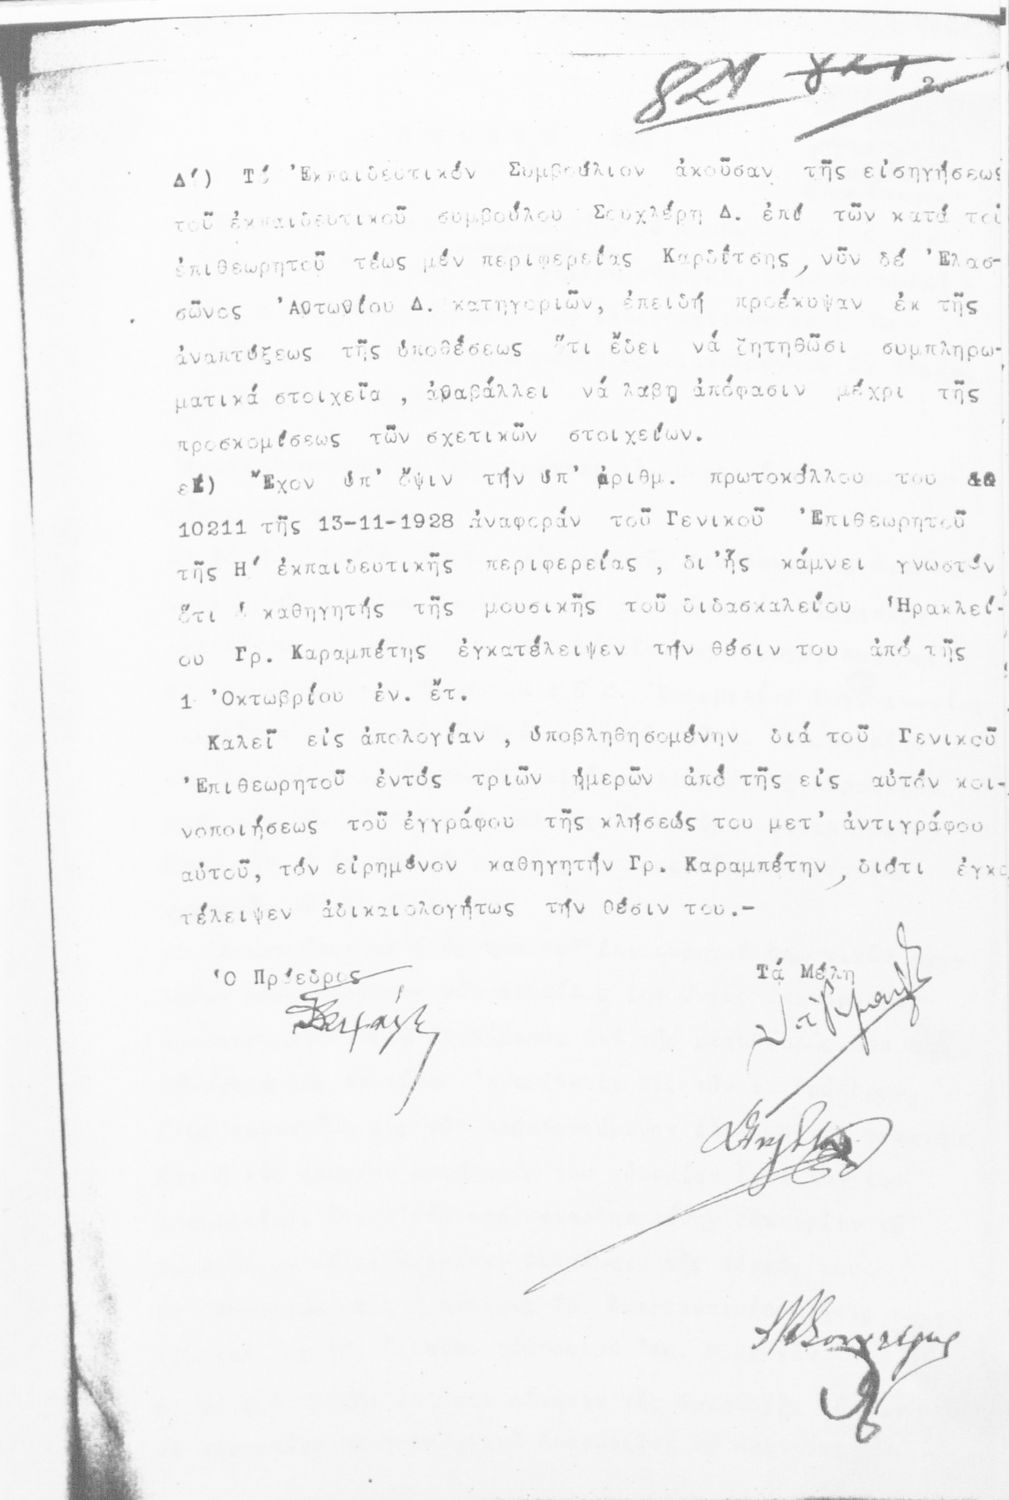 821
2
Δ΄) Τό Ἐκπαιδευτικόν Συμβούλιον ἀκοῦσαν τῆς εἰσηγήσεως
τοῦ ἐκπαιδευτικοῦ συμβούλου Σουχλέρη Δ. ἐπί τῶν κατά τοῦ
ἐπιθεωρητοῦ τέως μέν περιφερείας Καρδίτσης, νῦν δέ Ἐλασ-
σῶνος Δ. κατηγοριῶν, ἐπειδή προέκυψαν ἐκ τῆς
ἀναπτύξεως τῆς ὑποθέσεως ὅτι ἔδει νά ζητηθῶσι συμπληρω-
ματικά στοιχεῖα, ἀναβάλλει νά λαβη ἀπόφασιν μέχρι τῆς
προσκομίσεως τῶν σχετικῶν στοιχείων.
ε) Ἔχον ὑπ' ὄψιν τήν ὑπ' ἀριθμ. πρωτοκόλλου του
10211 τῆς 13-11-1928 ἀναφοράν τοῦ Γενικοῦ Ἐπιθεωρητοῦ
τῆς Η΄ ἐκπαιδευτικῆς περιφερείας, δι'ἧς κάμνει γνωστόν
ὅτι ὁ καθηγητής τῆς μουσικῆς τοῦ διδασκαλείου Ἡρακλεί-
ου Γρ. Καραμπέτης ἐγκατέλειψεν τήν θέσιν του ἀπό τῆς
1 Ὀκτωβρίου ἐν. ἔτ.
Καλεῖ εἰς ἀπολογίαν, ὑποβληθησομένην διά τοῦ Γενικοῦ
Ἐπιθεωρητοῦ ἐντός τριῶν ἡμερῶν ἀπό τῆς εἰς αὐτόν κοι-
νοποιήσεως τοῦ ἐγγράφου τῆς κλήσεώς του μετ' ἀντιγράφου
αὐτοῦ, τόν εἰρημένον καθηγητήν Γρ. Καραμπέτην, διότι ἐγκα
τέλειψεν ἀδικαιολογήτως τήν θέσιν του.-
Ὁ Πρόεδρος Τά Μέλη